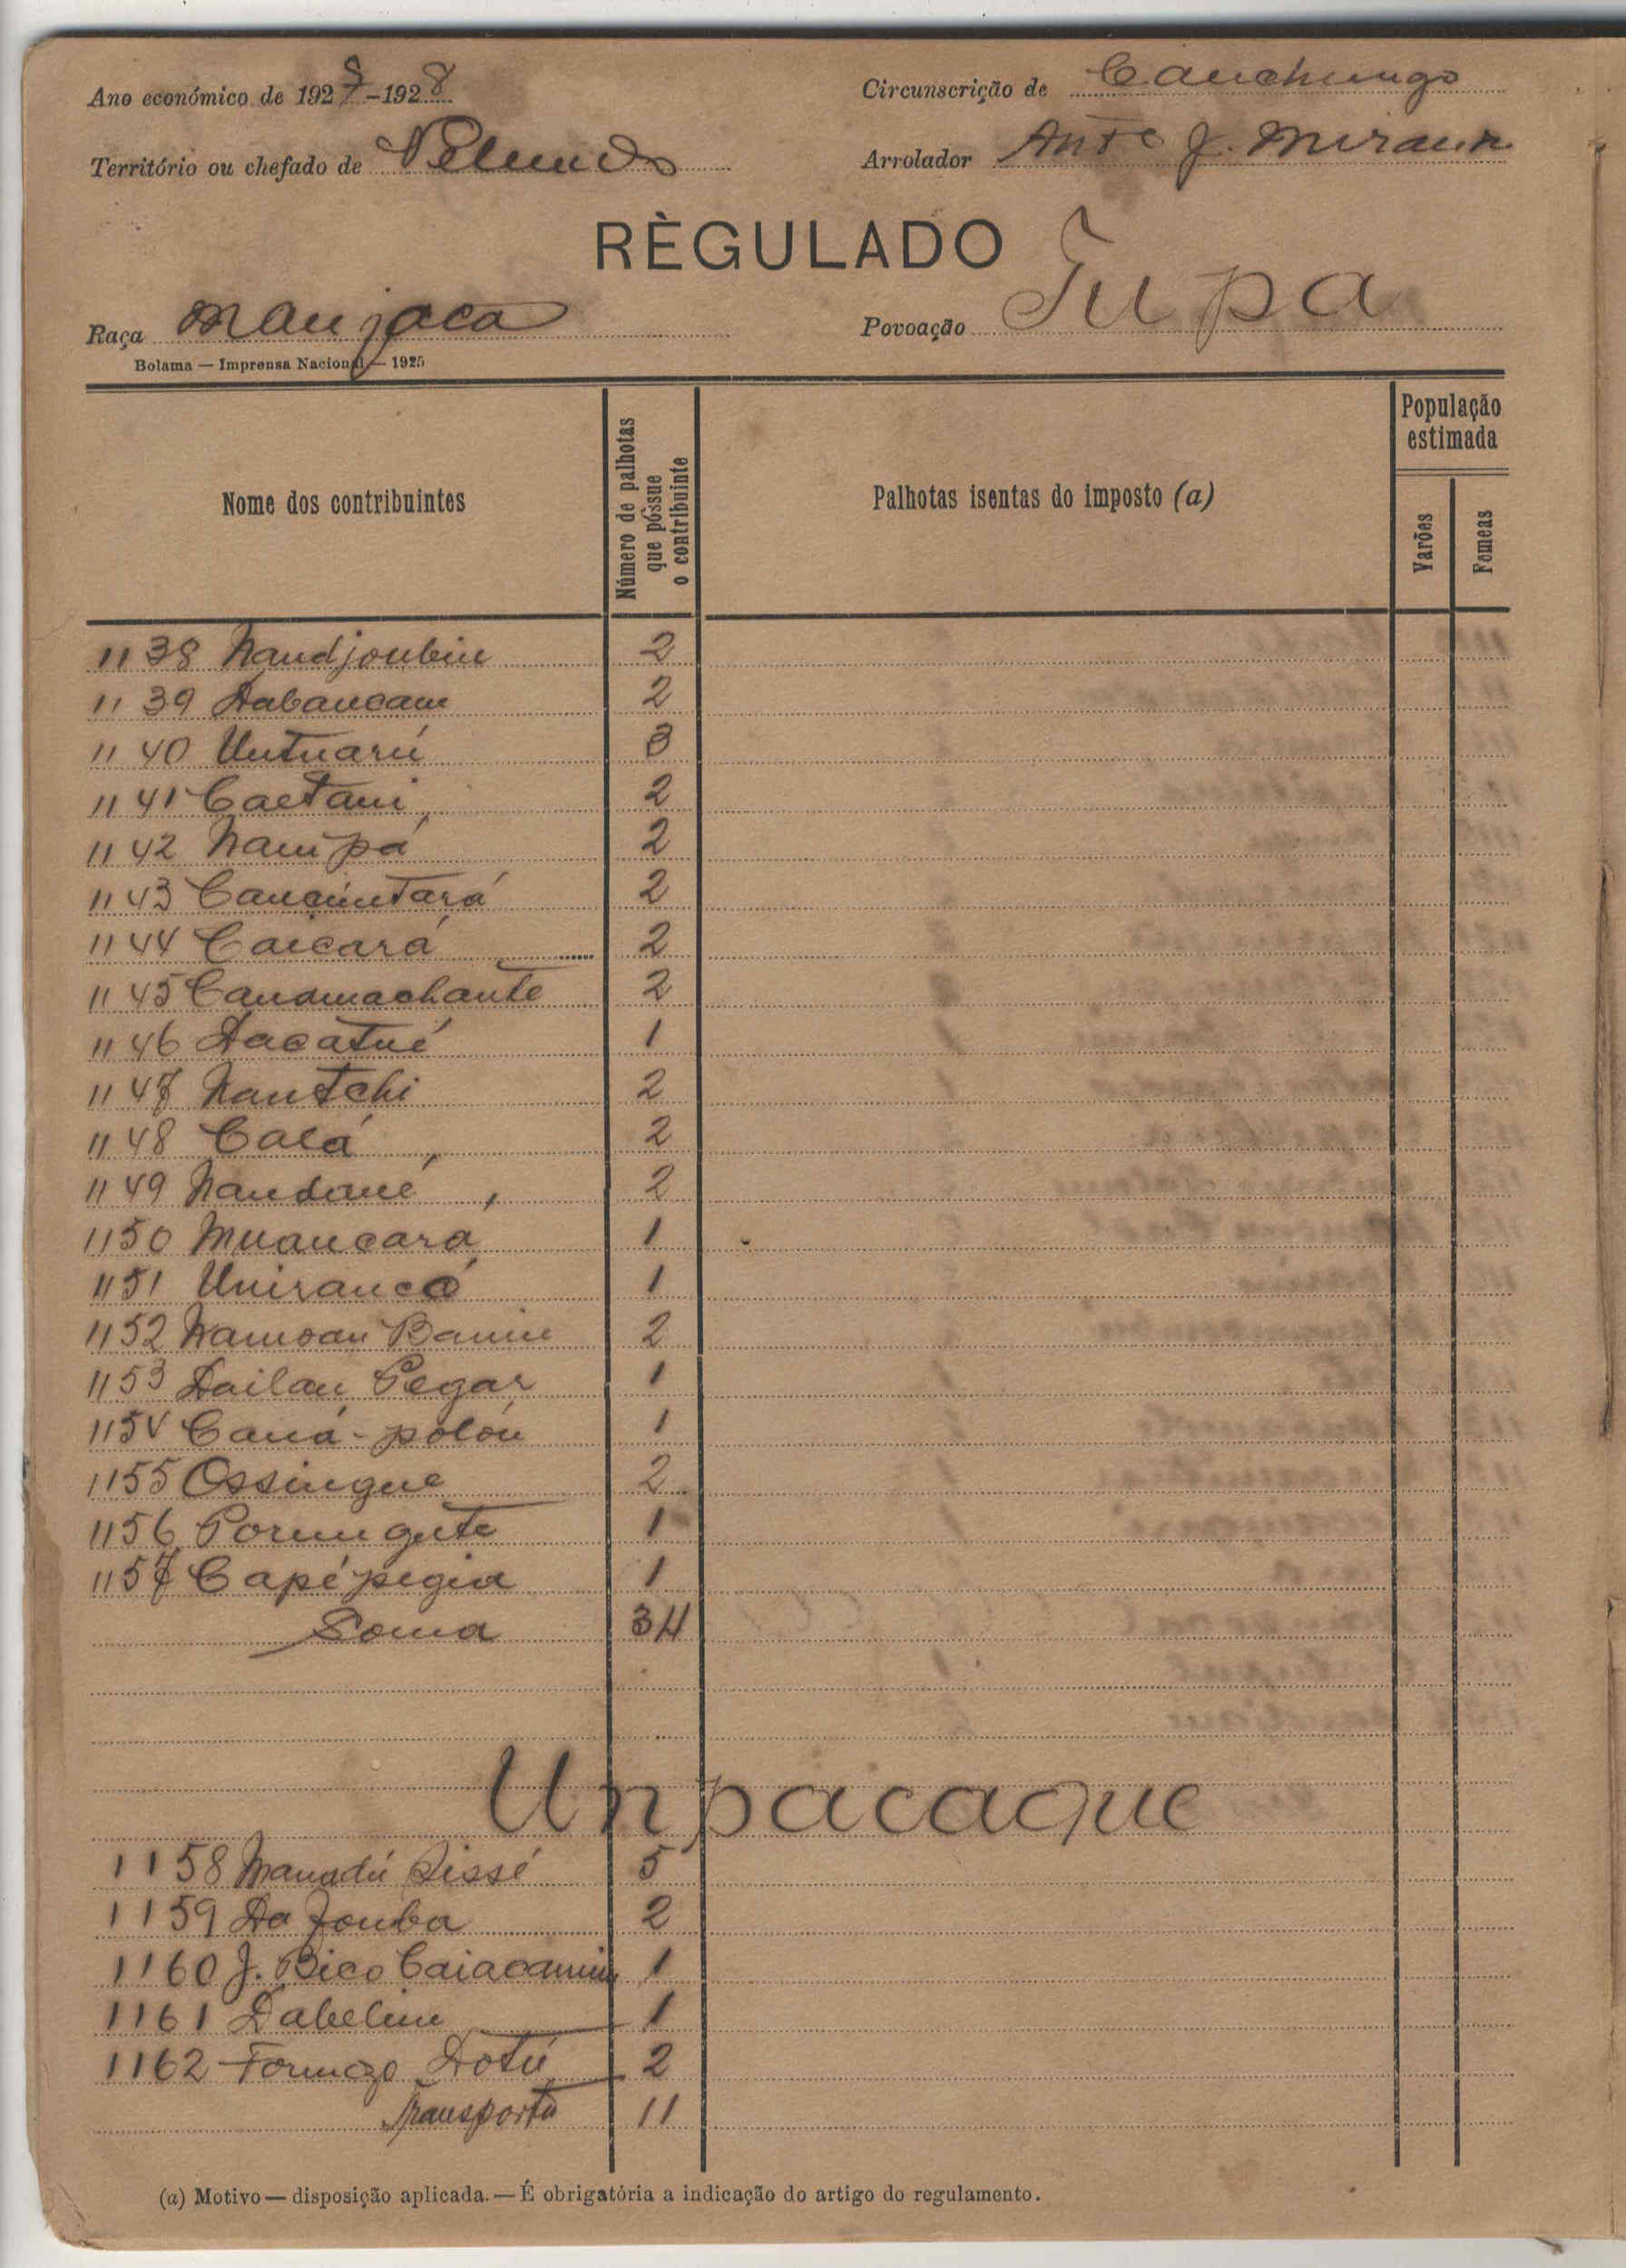 Ano económico de 1927-1928 Circunscrição de Canchungo
Território ou chefado de Pelundo Arrolador Antº J. Miranda
RÈGULADO
Raça Manjaca Povoação Jupa
Bolama — Imprensa Nacional — 1925
Nome dos contribuintes Número de palhotas que póssue o contribuinte Palhotas isentas do imposto (a) População estimada Varões Femeas
1138 Nandjoubin 2
1139 Dabancam 2
1140 Untuarú 3
1141 Caetani 2
1142 Nanipá 2
1143 2
1144 Caicará 2
1145 2
1146 Dacatué 1
1147 Nantchi 2
1148 Calá 2
1149 2
1150 Muancara 1
1151 Unirancá 1
1152 2
1153 Dailan Pegar 1
1154 Caná-polón 1
1155 Ossingue 2
1156 1
1157 1
Soma 34
Unpacaque
1158 Mamadú Sissé 5
1159 Da Jouba 2
1160 J. Bico 1
1161 Dabelim 1
1162 Formozo Dotú 2
Transporte 11
(a) Motivo — disposição aplicada. — É obrigatória a indicação do artigo do regulamento.